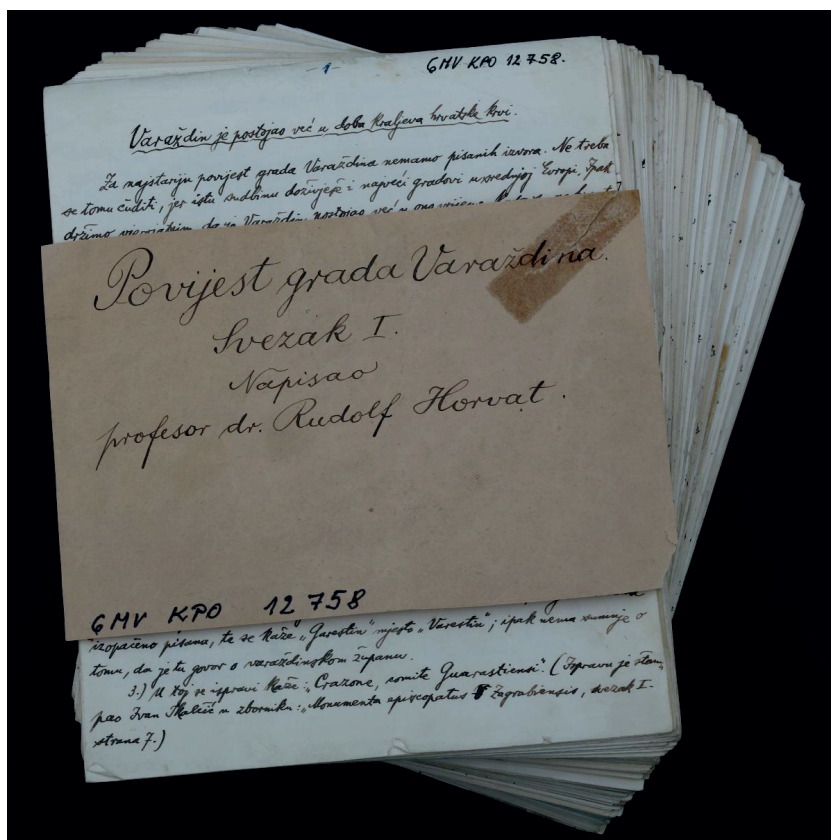 -1-
GMV KPO 12 758.
Varaždin je postojao već u doba Kraljeva hrvatske krvi.
Za najstariju povijest grada Varaždina nemamo pisanih izvora. Ne treba
se tomu čuditi, jer istu sudbinu doživješe i najveći gradovi u srednjoj Evropi. Ipak
držimo vjerojatnim, da je Varaždin postojao već u ono vrijeme
Povijest grada Varaždina.
Svezak I.
Napisao
profesor dr. Rudolf Horvat.
GMV KPO 12 758
izopačeno pisana, te se kaže „Garestin" mjesto „Varestin"; ipak nema sumnje o
tomu, da je tu govor o varaždinskom županu.
3.) U toj se ispravi kaže: „Crazone, comite Guarastiensi". (Ispravu je štam-
pao Ivan Tkalčić u zborniku: „Monumenta episcopatus Zagrabiensis, svezak I.
strana 7.)